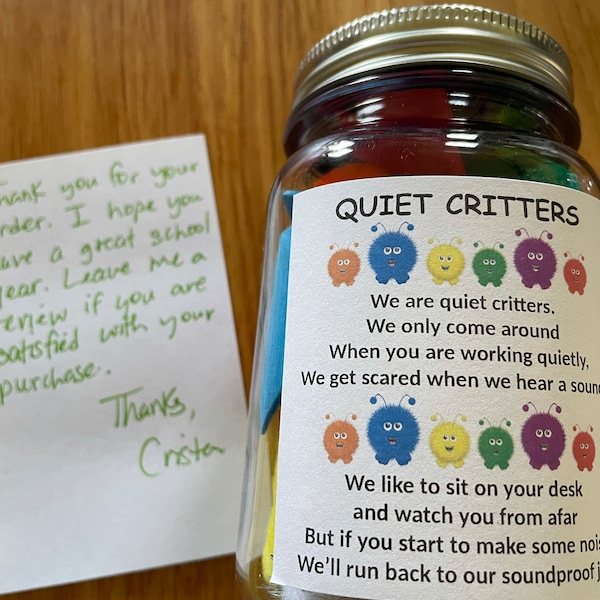 Thank you for your
order. I hope you
have a great school
year. Leave me a
review if you are
satisfied with your
purchase.
Thanks,
QUIET CRITTERS
We are quiet critters.
We only come around
When you are working quietly,
We get scared when we hear a sound
We like to sit on your desk
and watch you from afar
But if you start to make some nois
We'll run back to our soundproof j